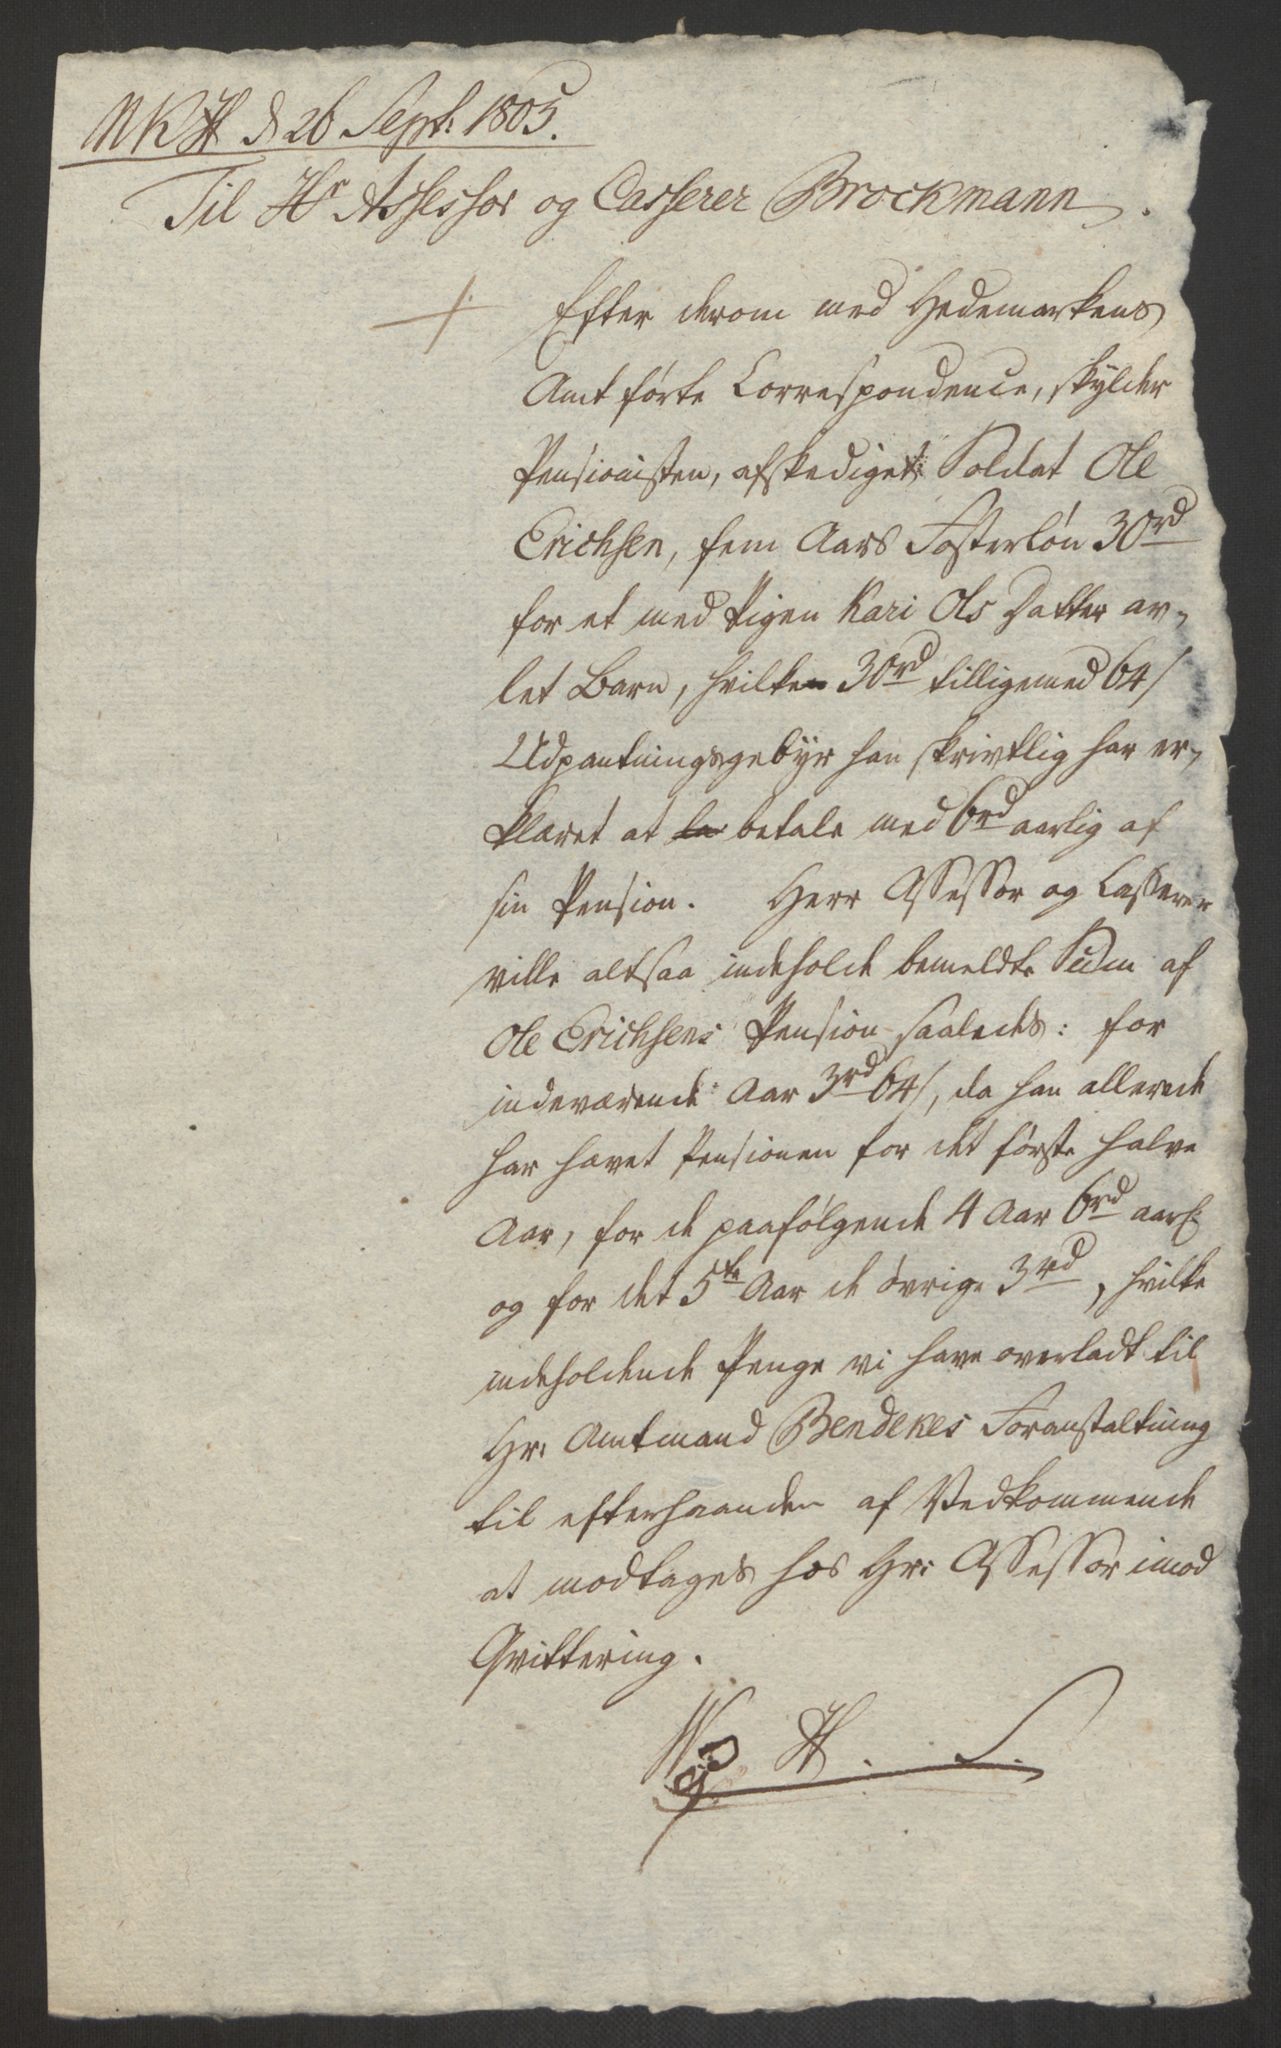 NKH d 26 Sept: 1805.
Til Hr Assessor og Casserer Brockmann.
Efter derom med Hedemarkens
Amt førte Correspondence, skylder
Pensionisten, afskediget Soldat Ole
Erichsen, fem Aars Fosterløn 30rd
for et med Pigen Kari Ols Datter av-
let Barn, hvilke 30rd tilligemed 64 s
Udpantningsgebyr han skrivtlig har er-
klæret at betale med 6rd aarlig af
sin Pension. Herr Assessor og Casserer
ville altsaa indeholde bemeldte Sum af
Ole Erichsens Pension saaledes: for
indeværende Aar 3rd 64 s, da han allerede
har havet Pensionen for det første halve
Aar, for de paafølgende 4 Aar 6rd aarl:
og for det 5te Aar de øvrige 3rd, hvilke
indeholdende Penge vi have overladt til
Hr: Amtmand Bendekes Foranstaltning
til efterhaanden af Vedkommende
at modtages hos Hr: Assessor imod
Qvittering.
H. S.